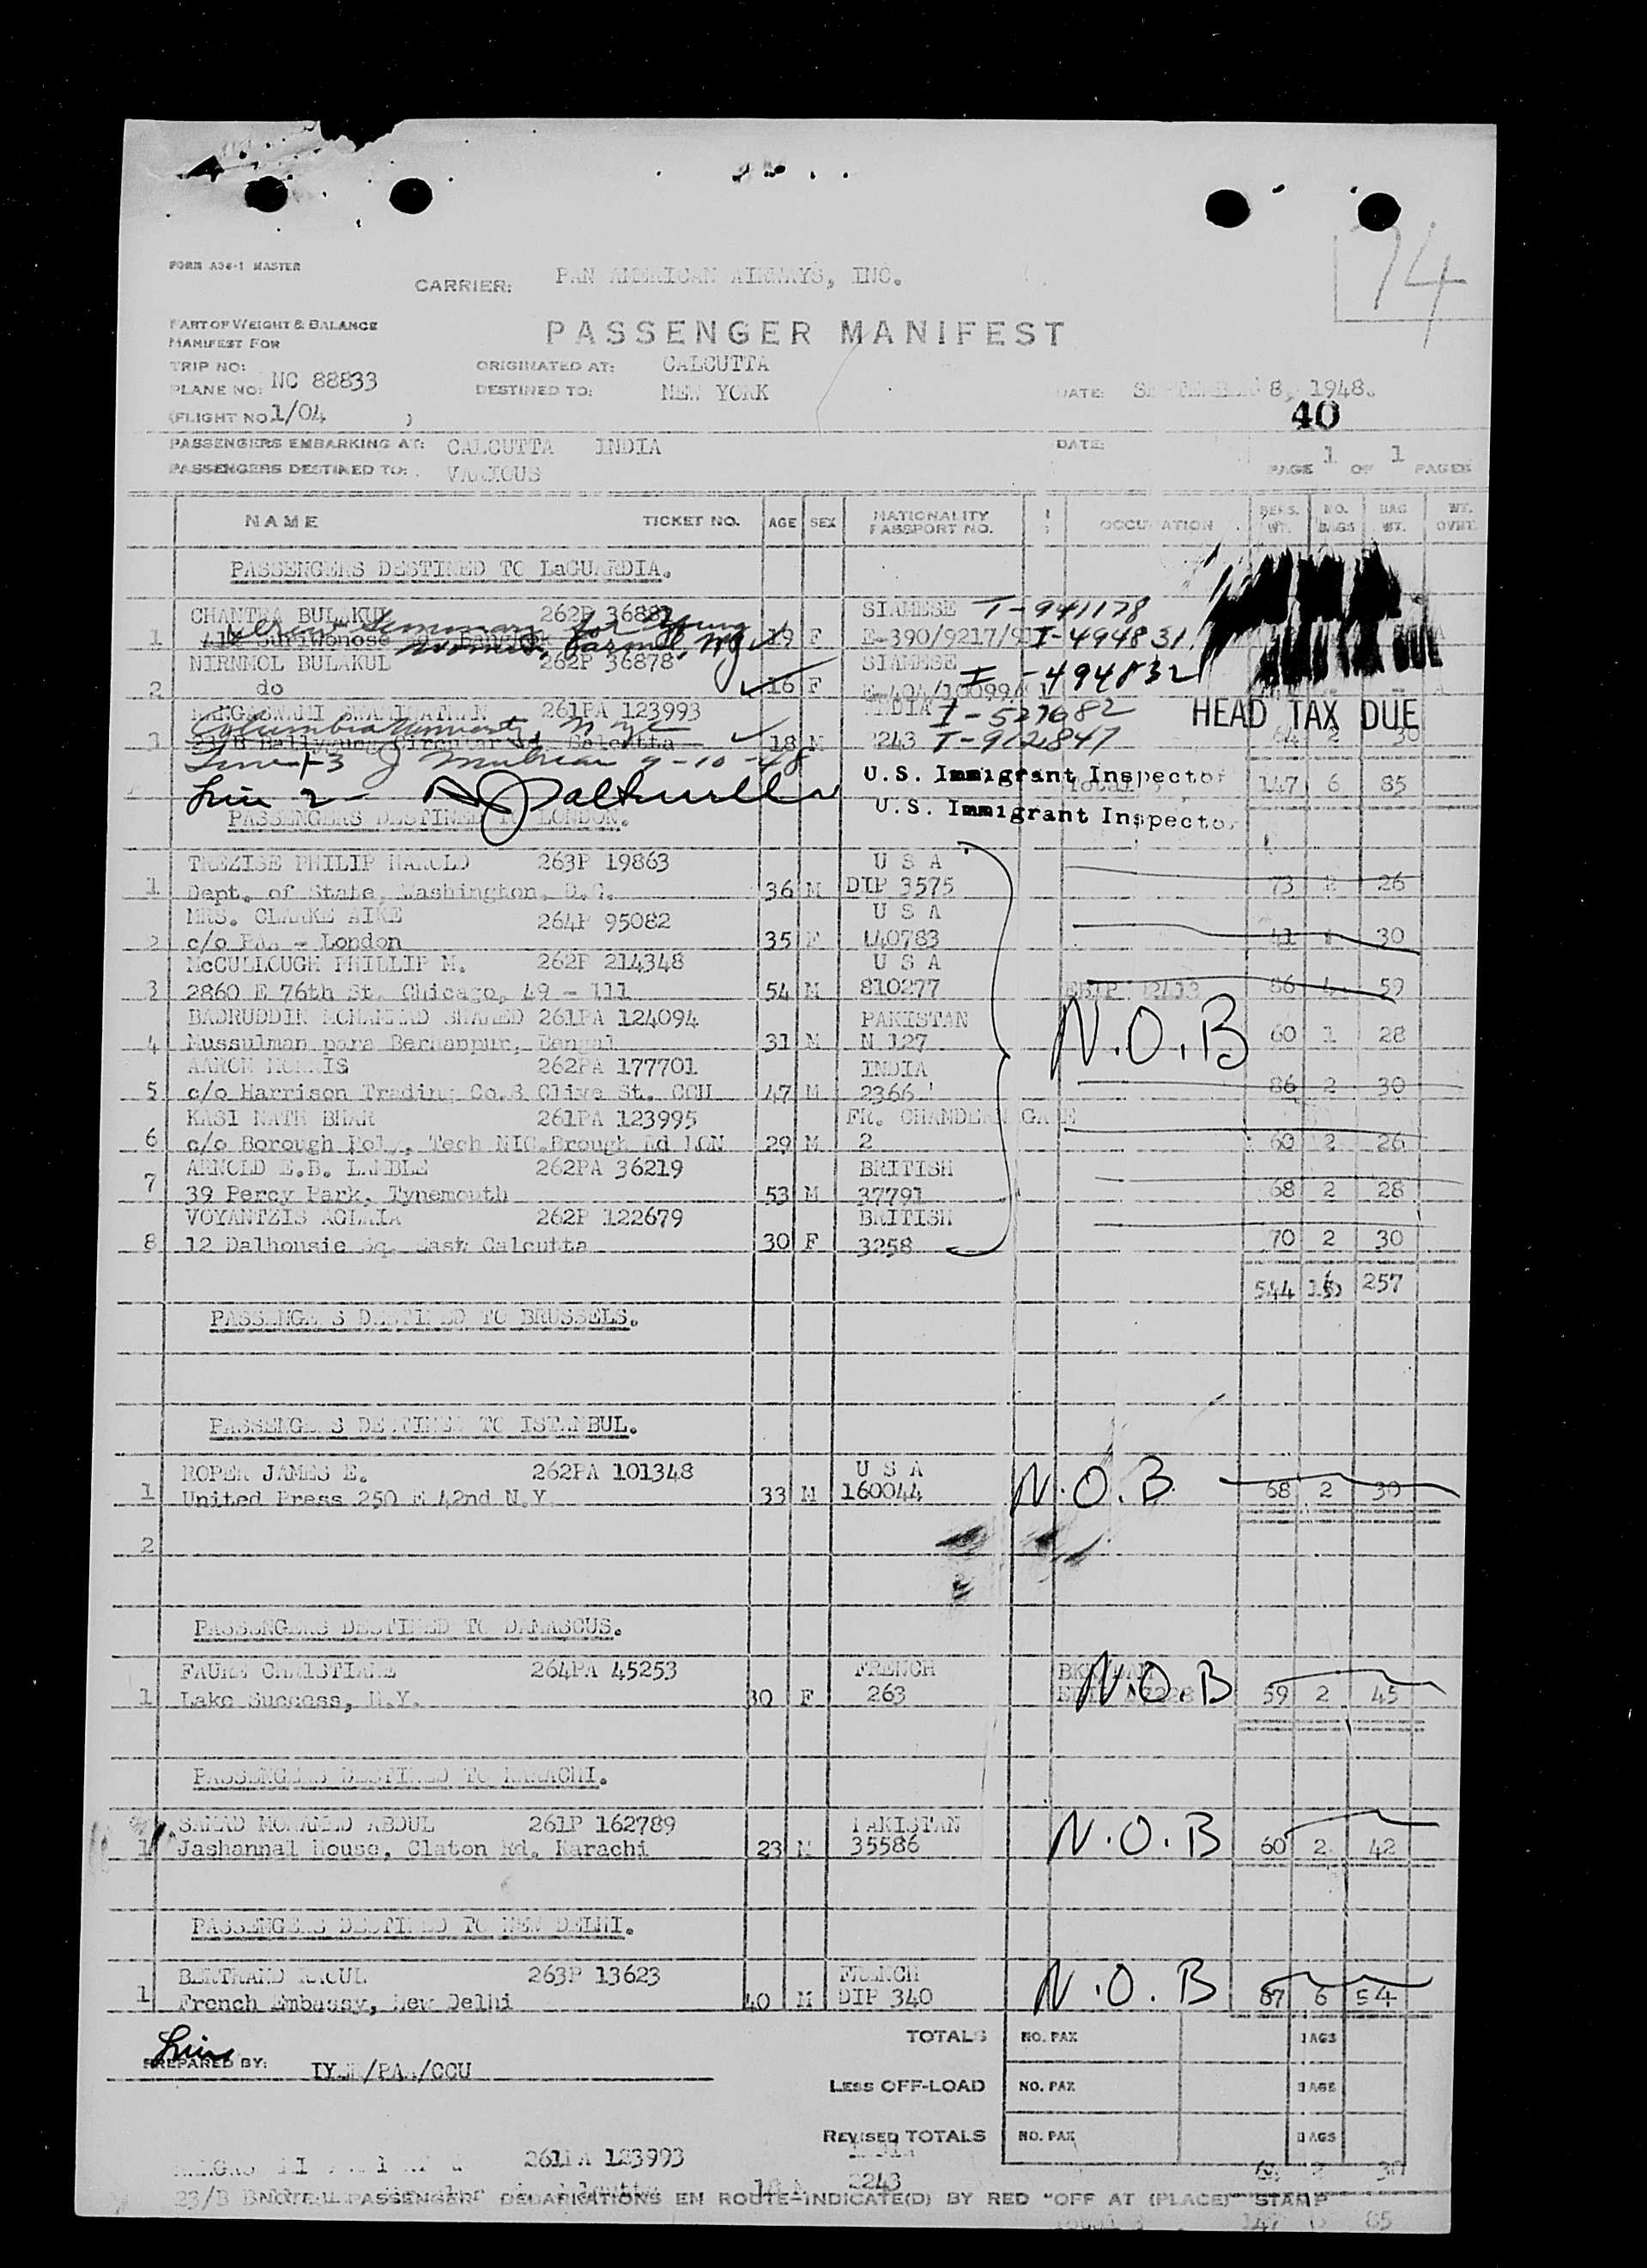 74
FORM A36-1 MASTER
CARRIER: PAN AMERICAN AIRWAYS, INC.
PART OF WEIGHT & BALANCE
MANIFEST FOR
PASSENGER MANIFEST
TRIP NO:
ORIGINATED AT: CALCUTTA
PLANE NO: NC 88833
DESTINED TO: NEW YORK
DATE: SEPTEMBER 8, 1948.
(FLIGHT NO 1/04 )
40
PASSENGERS EMBARKING AT: CALCUTTA INDIA
DATE:
PASSENGERS DESTINED TO: VARIOUS
PAGE 1 OF 1 PAGES
NAME TICKET NO. AGE SEX NATIONALITY PASSPORT NO. OCCUPATION PERS. WT. NO. BAGS BAG WT. WT. OVWT.
PASSENGERS DESTINED TO LaGUARDIA.
CHANTRA BULAKUL 262P 3688 SIAMESE T-941178
Seminary for Young
1 19 F E-390/9217/9 I-494831
Women, Carmel, NY
NIRNMOL BULAKUL 262P 36878 SIAMESE I-494832
2 do 16 F E-404/10099/
RANGASWAMI SWAMINATHAN 261PA 123993 INDIA I-527682
HEAD TAX DUE
Columbia University N.Y.C.
3 23/B Ballygung Circular Rd. Calcutta 18 M 2243 T-912847 64 2 30
Line 1-3 J 9-10-48 U.S. Immigrant Inspector
Total 3 147 6 85
Line 2 U.S. Immigrant Inspector
PASSENGERS DESTINED TO LONDON.
TREZISE PHILIP HAROLD 263P 19863 U S A
1 Dept. of State, Washington, D.C. 36 M DIP 3575 73 2 26
MRS. CLARKE AIKE 264P 95082 U S A
2 c/o PAA - London 35 F 140783 41 1 30
McCULLOUGH PHILLIP M. 262P 214348 U S A
3 2860 E 76th St. Chicago, 49 - Ill 54 M 810277 86 4 59
BADRUDDIN MOHAMMAD SHAMED 261PA 124094 PAKISTAN
N.O.B
4 Mussulman para Berhampur, Bengal 31 M N 127 60 1 28
AARON MORRIS 262PA 177701 INDIA
5 c/o Harrison Trading Co.8 Clive St. CCU 47 M 2366 86 2 30
KASI NATH BHAR 261PA 123995 FR. CHANDERNGAGE
6 c/o Borough Poly. Tech NIC.Brough Rd LON 29 M 2 60 2 26
ARNOLD E.B. LAMBLE 262PA 36219 BRITISH
7 39 Percy Park, Tynemouth 53 M 37791 68 2 28
VOYANTZIS AGLAIA 262P 122679 BRITISH
8 12 Dalhousie Sq. East Calcutta 30 F 3258 70 2 30
544 16 257
PASSENGERS DESTINED TO BRUSSELS.
PASSENGERS DESTINED TO ISTANBUL.
ROPER JAMES E. 262PA 101348 U S A
1 United Press 250 E 42nd N.Y. 33 M 160044 N.O.B 68 2 30
2
PASSENGERS DESTINED TO DAMASCUS.
FAURE CHRISTIANE 264PA 45253 FRENCH
1 Lake Success, N.Y. 30 F 263 N.O.B 59 2 45
PASSENGERS DESTINED TO KARACHI.
SAMAD MOHAMED ABDUL 261P 162789 PAKISTAN
1 Jashanmal House, Claton Rd. Karachi 23 M 35586 N.O.B 60 2 42
PASSENGERS DESTINED TO NEW DELHI.
BERTRAND RAOUL 263P 13623 FRENCH
1 French Embassy, New Delhi 40 M DIP 340 N.O.B 87 6 54
TOTALS NO. PAX BAGS
PREPARED BY: /PAA/CCU
LESS OFF-LOAD NO. PAX BAGS
REVISED TOTALS NO. PAX BAGS
261PA 123993 2 30
23/B 2243
NOTE: PASSENGER DEBARKATIONS EN ROUTE-INDICATE(D) BY RED "OFF AT (PLACE)" STAMP
Total 3 147 85